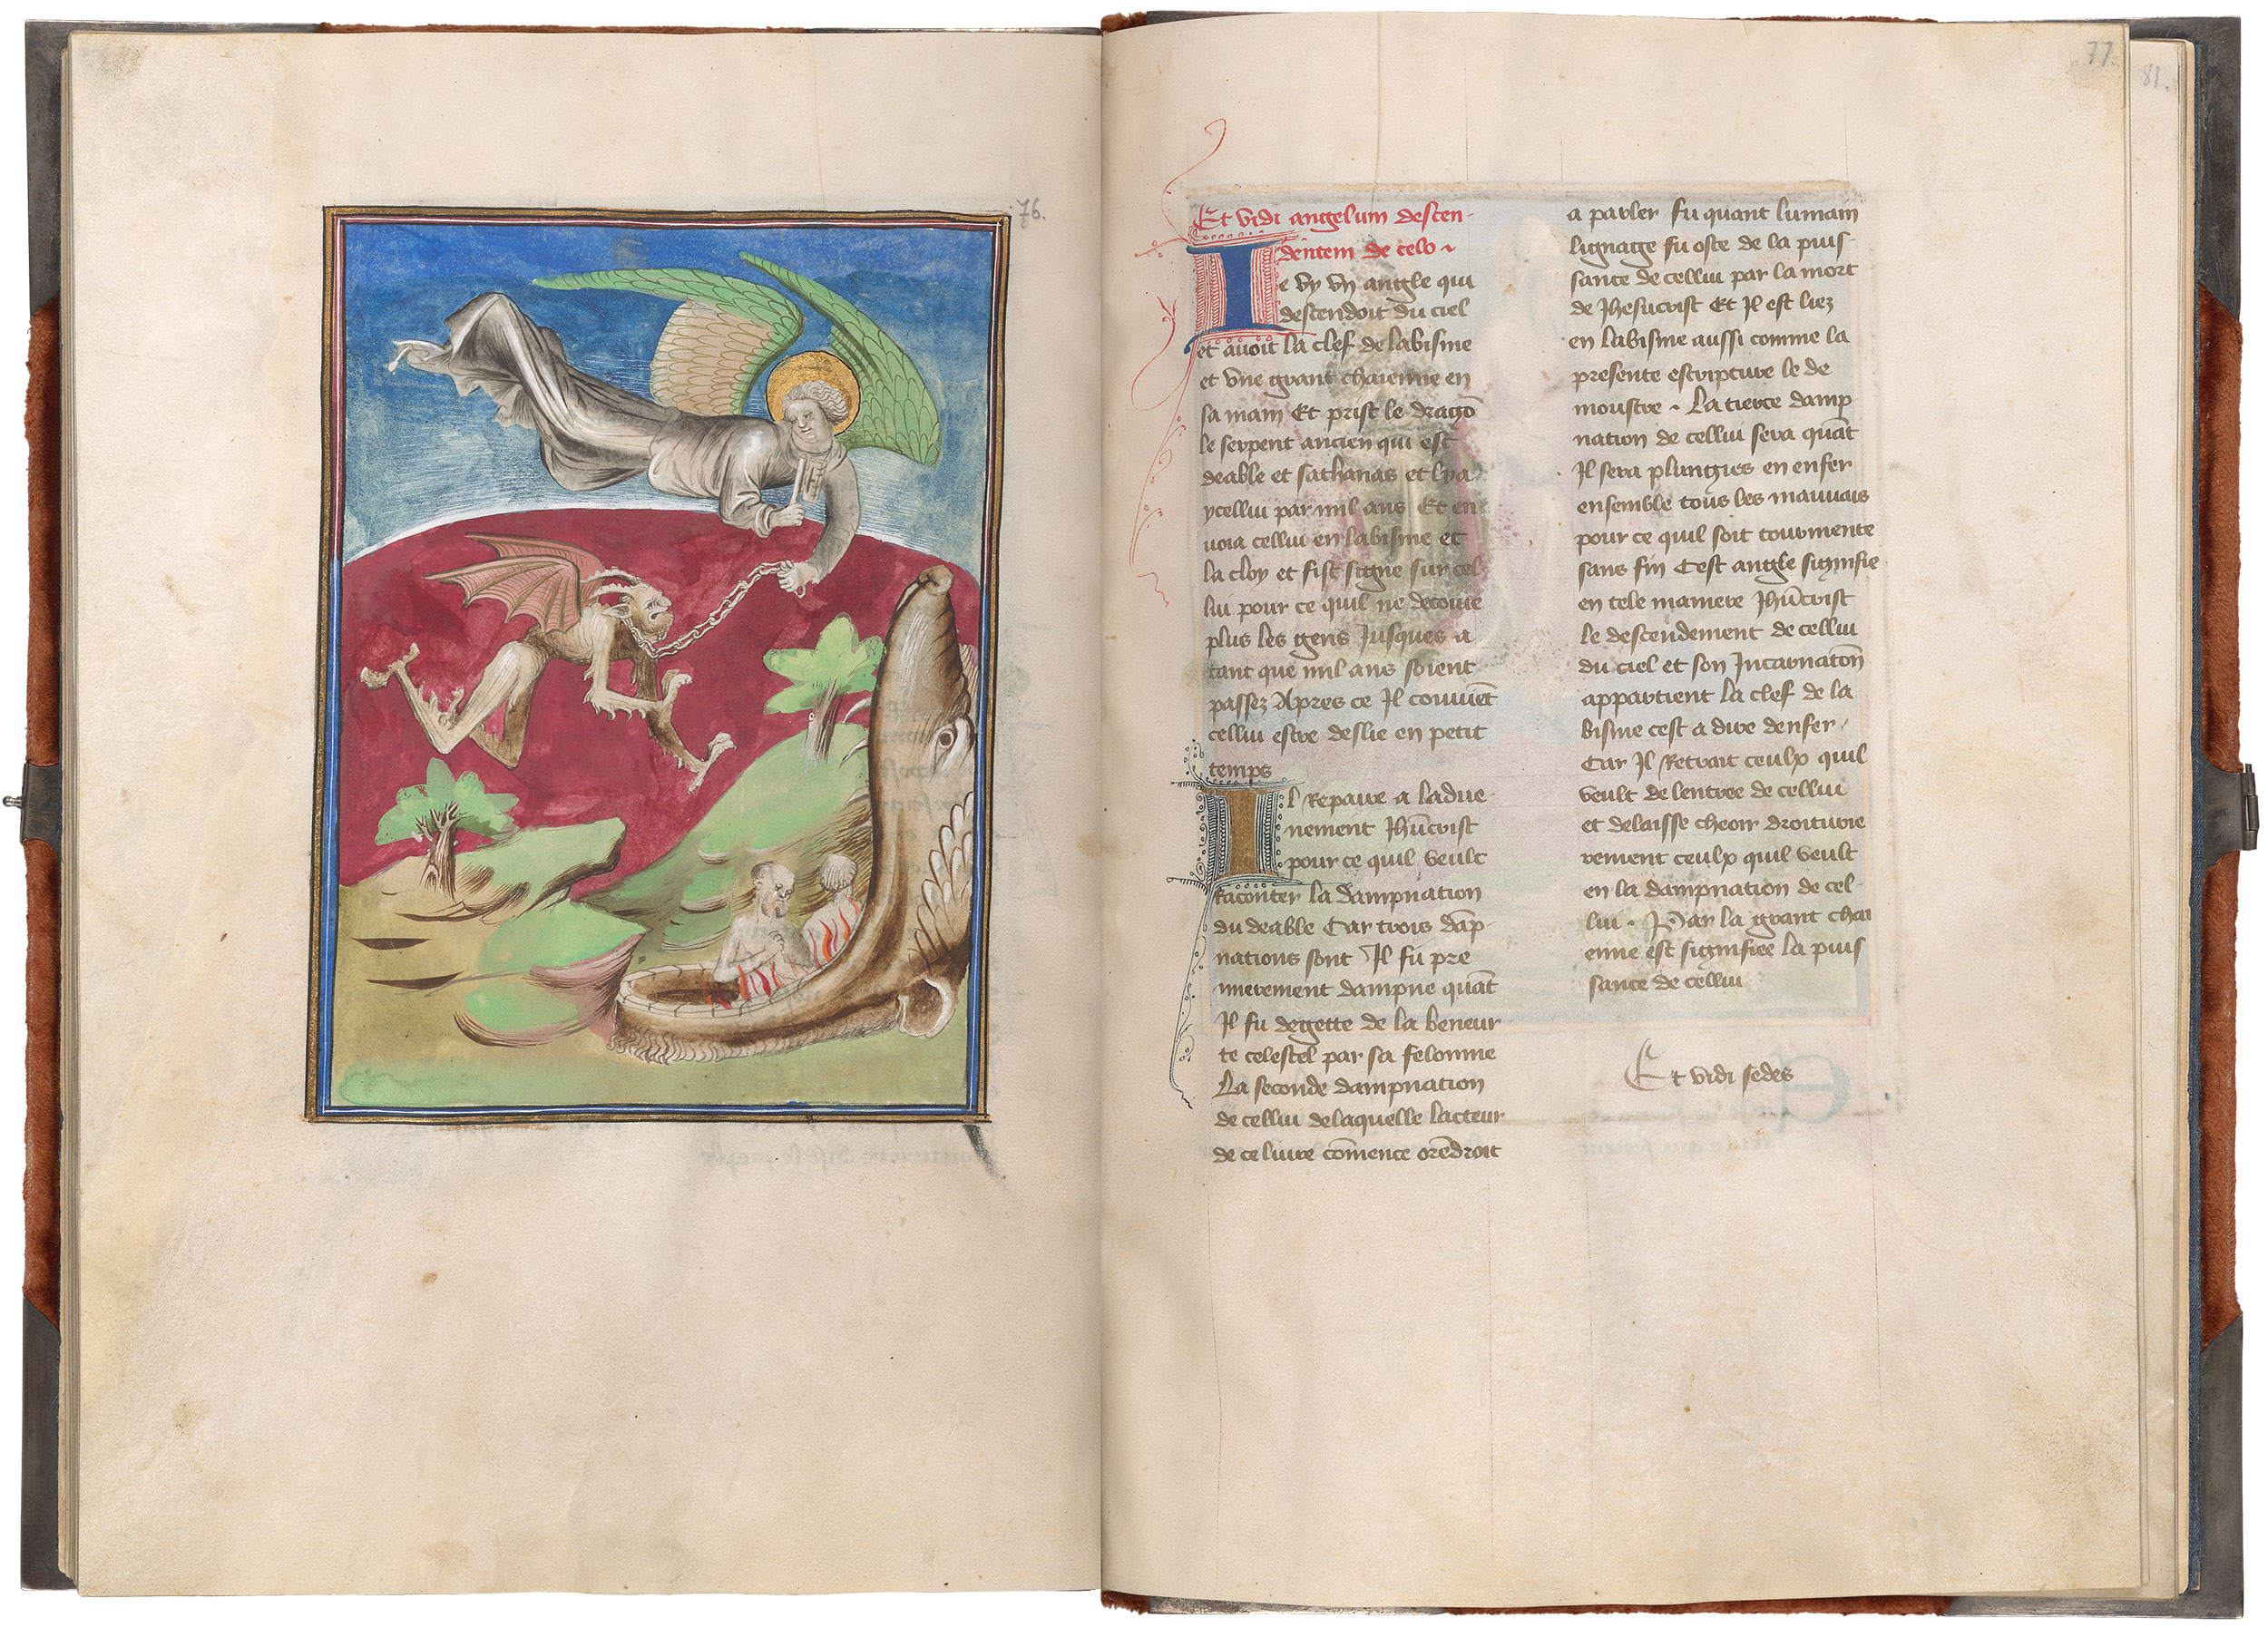 76.
77.
81.
Et vidi angelum descen-
dentem de celo
Ie vy vn angle qui
descendoit du ciel
et auoit la clef de labisme
et vne grant chaienne en
sa main Et prist le dragõ
le serpent ancien qui est
deable et sathanas et lya
ycellui par mil ans Et en
uoia cellui en labisme et
la cloy et fist signe sur cel
lui pour ce quil ne decoiue
plus les gens Jusques a
tant que mil ans soient
passez Apres ce Il conuiẽt
cellui estre deslie en petit
temps
Il Repaire a ladue
nement Jhũcrist
pour ce quil veult
Raconter la dampnation
du deable Car trois dãp
nations sont Il fu pre
mierement dampne quãt
Il fu degette de la beneur
te celestel par sa felonnie
La seconde dampnation
de cellui delaquelle lacteur
de ce liure cõmence orẽdroit
a parler fu quant lumain
lignage fu oste de la puis
sance de cellui par la mort
de Jhesucrist Et Il est liez
en labisme aussi comme la
presente escripture le de
moustre . La tierce damp
nation de cellui sera quãt
Il sera plungies en enfer
ensemble tous les mauuais
pour ce quil soit tourmente
sans fin Cest angle signifie
en tele maniere Jhũcrist
le descendement de cellui
du ciel et son Incarnatõn
appartient la clef de la
bisme cest a dire denfer /
Car Il Retrait ceulx quil
veult de lentree de cellui
et delaisse cheoir droiturie
rement ceulx quil veult
en la dampnation de cel-
lui . Par la grant chai
enne est signifiee la puis
sance de cellui
Et vidi sedes